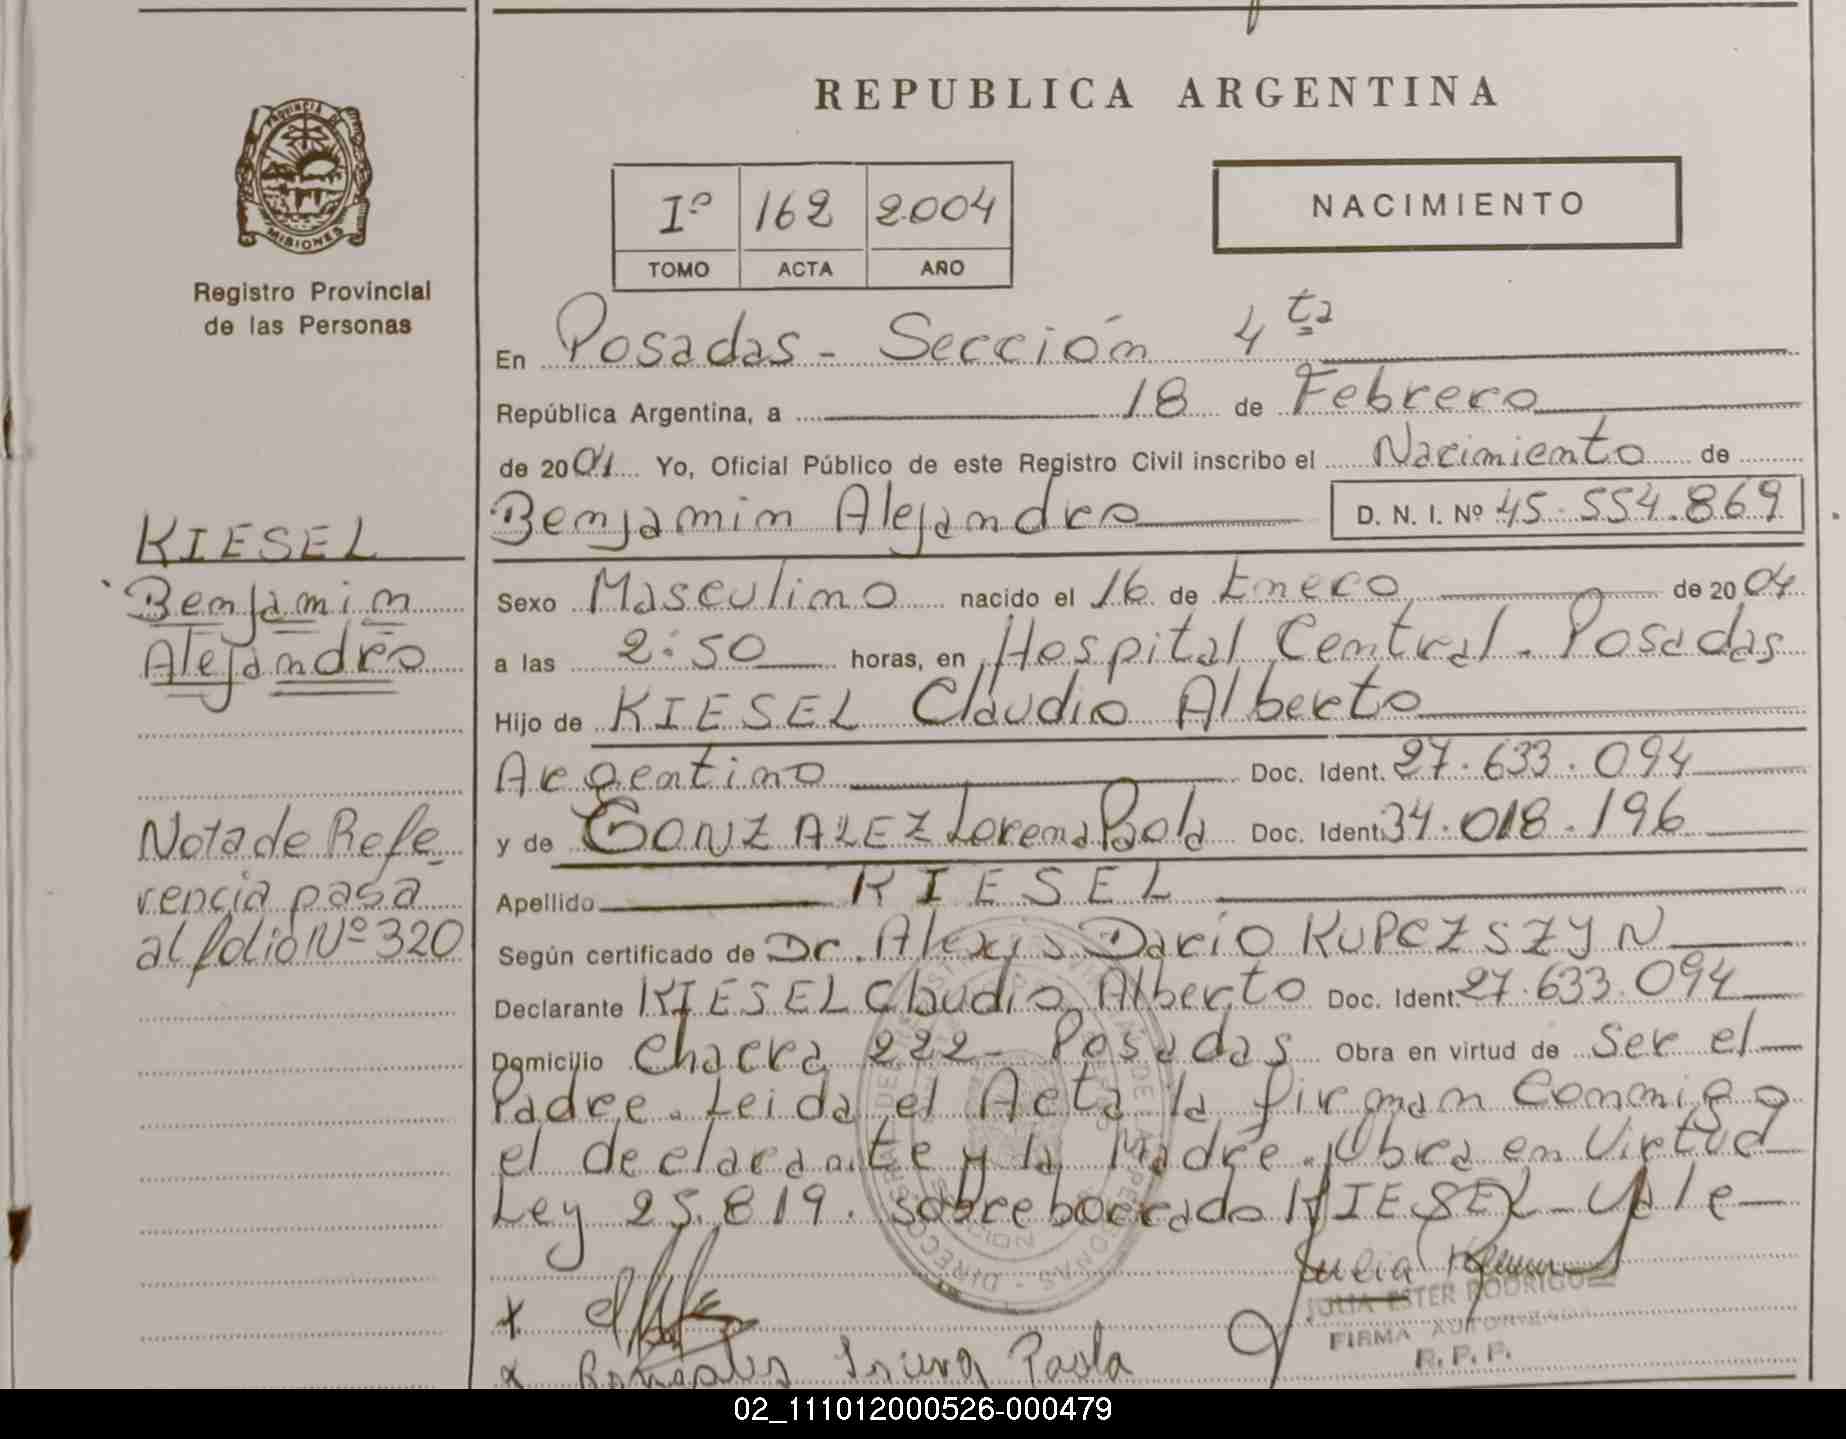 REPUBLICA ARGENTINA
PROVINCIA DE
MISIONES
Registro Provincial
de las Personas
Iº 162 2004
TOMO ACTA AÑO
NACIMIENTO
En Posadas - Sección 4ta
República Argentina, a 18 de Febrero
de 2004 Yo, Oficial Público de este Registro Civil inscribo el Nacimiento de
Benjamin Alejandro D. N. I. Nº 45.554.869
KIESEL
Benjamin
Alejandro
Sexo Masculino nacido el 16 de Enero de 2004
a las 2:50 horas, en Hospital Central. Posadas
Hijo de KIESEL Claudio Alberto
Argentino Doc. Ident. 27.633.094
y de GONZALEZ Lorena Paola Doc. Ident. 34.018.196
Apellido KIESEL
Nota de Refe-
rencia pasa
al folio Nº 320
Según certificado de Dr. Alexis Dario KUPCZSZYN
Declarante KIESEL Claudio Alberto Doc. Ident. 27.633.094
Domicilio Chacra 222 - Posadas Obra en virtud de Ser el
Padre. Leida el Acta la firman Conmigo
el declarante y la Madre. Obra en Virtud
Ley 25.819. sobreborrado KIESEL - Vale
JULIA ESTER RODRIGUE
FIRMA AUTORIZADA
R. P. P.
x
x Paola
02_111012000526-000479